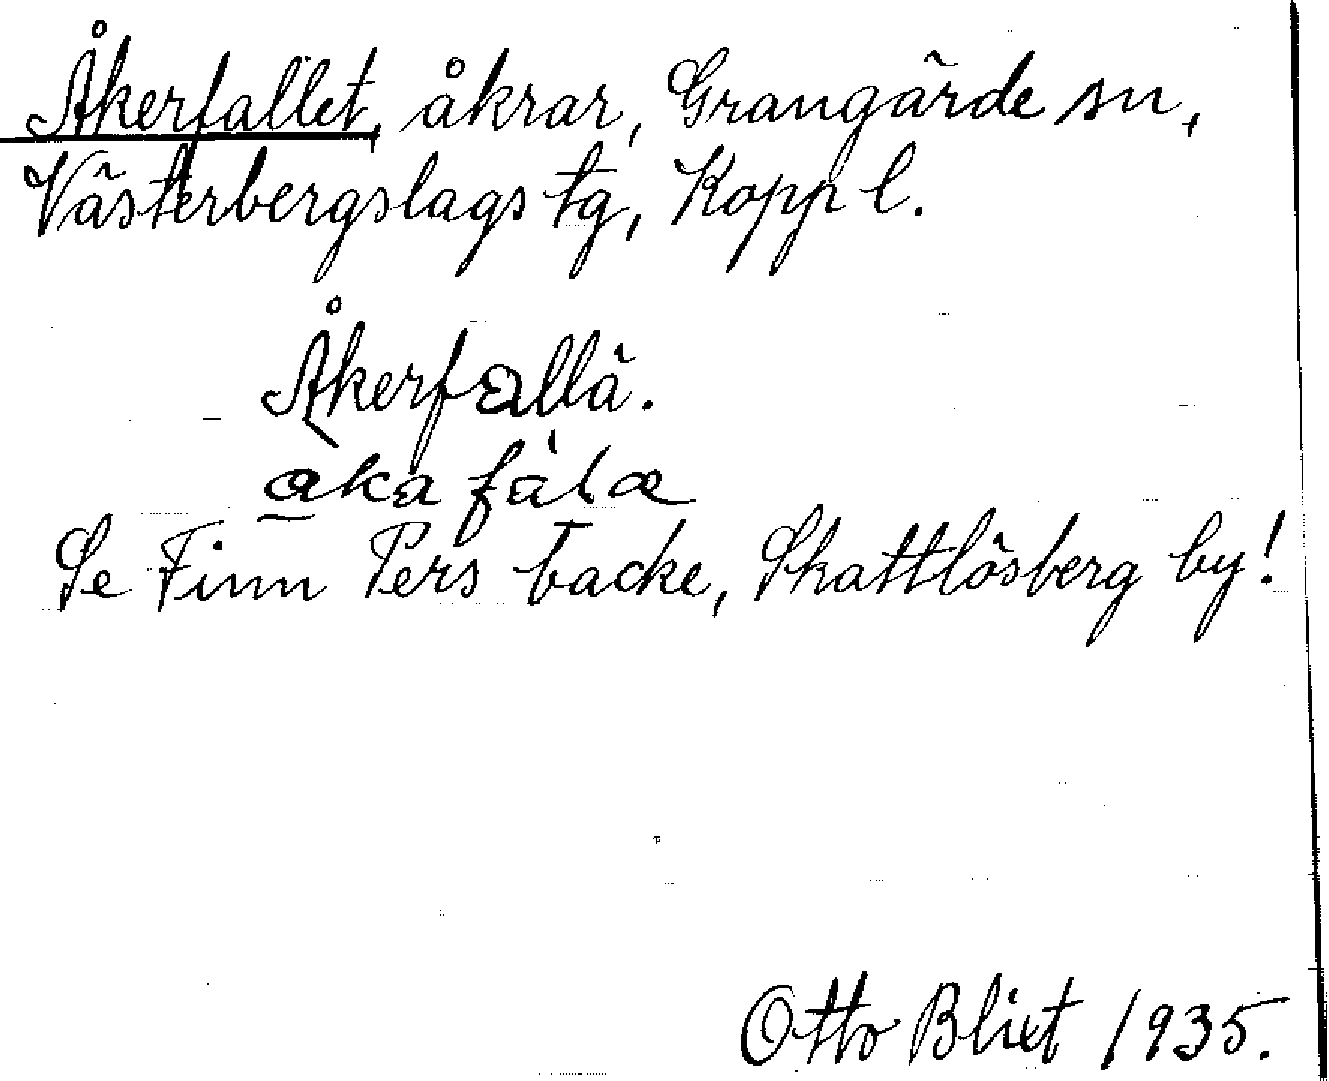 Åkerfallet, åkrar, Grangärde sn,
Västerbergslags tg, Kopp l.
Åkerfallä.
aka fàlæ
Se Finn Pers backe, Skattlösberg by!
Otto Blixt 1935.